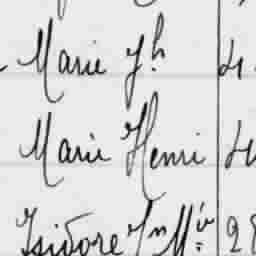 Marie Jh 4
Marie Henri 4
Isidore Jn Mie 28